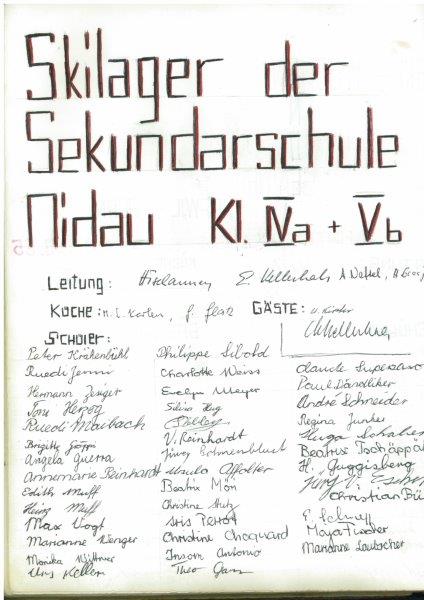 Skilager der
Sekundarschule
Nidau Kl. IVa + Vb
Leitung: E. Kellerhals
Küche: GÄSTE:
Schüler:
Peter Krähenbühl
Ruedi Jenni
Hermann Zenger
Toni Herzog
Ruedi Maibach
Brigitte Göppi
Angela Guerra
Annemarie Reinhardt
Edith Muff
Heinz Muff
Max Vogt
Marianne Wenger
Monika Wittmer
Urs Keller
Philippe Sibold
Charlotte Weiss
Evelyn Meyer
Silvia Hug
V. Reinhardt
Jürg
Ursula Affolter
Beatrix Mön
Christine Stutz
Iris Perrot
Christine Chequard
Insom Antonio
Theo Gans
Claude Supersaxo
Paul Dändliker
André Schneider
Regina Junker
Hugo
Beatrix Tschäppät
H. Guggisberg
Jürg v.
Christian
Maya Fischer
Marianne Laubscher